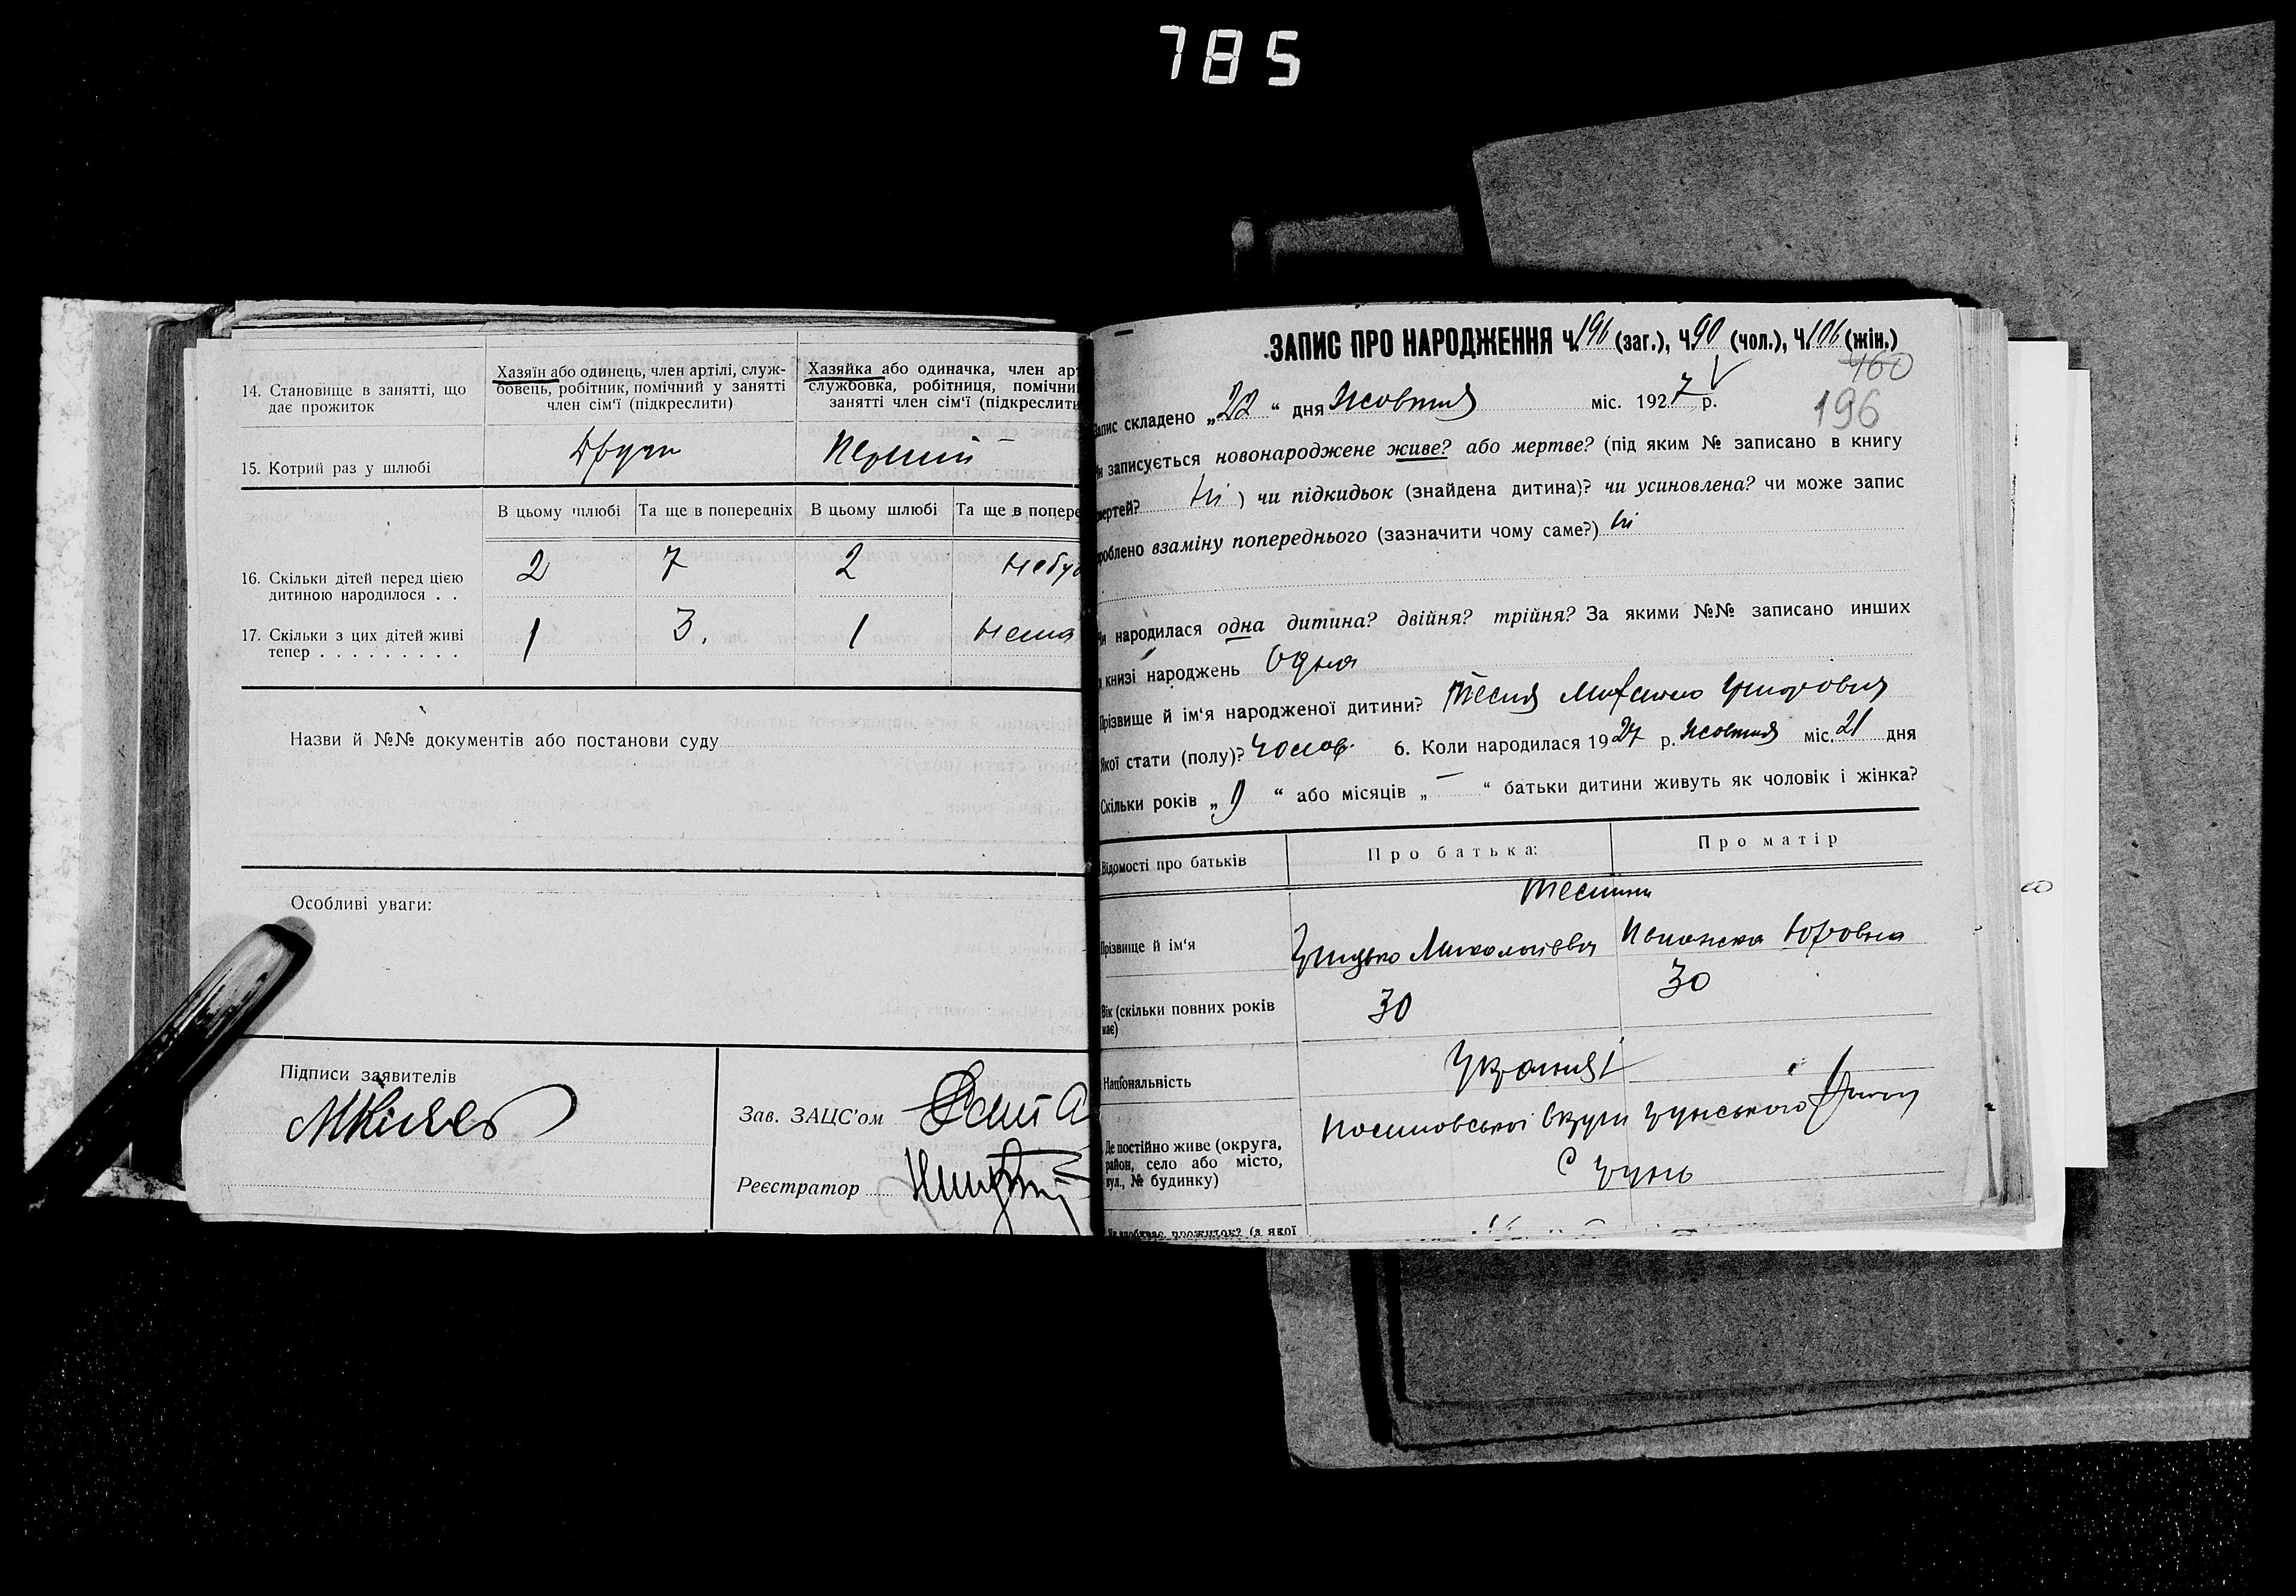 785
14. Становище в занятті, що
дає прожиток
Хазяїн або одинець, член артілі, служ-
бовець, робітник, помічний у занятті
член сім'ї (підкреслити)
Хазяйка або одиначка, член ар
службовка, робітниця, помічни
занятті член сім'ї (підкреслити
15. Котрий раз у шлюбі
Други
Перший
В цьому шлюбі
Та ще в попередніх
В цьому шлюбі
Та ще в попере
16. Скільки дітей перед цією
дитиною народилося . .
2
7
2
Небу
17. Скільки з цих дітей живі
тепер . . . . . . . . .
1
3.
1
Нема
Назви й №№ документів або постанови суду
Особливі уваги:
Підписи заявителів
Зав. ЗАЦС'ом
Реєстратор
ЗАПИС ПРО НАРОДЖЕННЯ Ч. 196 (заг.), Ч. 90 (чол.), Ч. 106 (жін.)
460
196
апис складено „22“ дня Жовтня міс. 1927 р.
и записується новонароджене живе? або мертве? (під яким № записано в книгу
мертей? Ні ) чи підкидьок (знайдена дитина)? чи усиновлена? чи може запис
роблено взаміну попереднього (зазначити чому саме?) Ні
и народилася одна дитина? двійня? трійня? За якими №№ записано инших
книзі народжень Одна
Прізвище й ім'я народженої дитини? Тесля Михайло Григорович
Якої стати (полу)? Чолов. 6. Коли народилася 1927 р. Жовтня міс. 21 дня
Скільки років „9“ або місяців „—“ батьки дитини живуть як чоловік і жінка?
Відомості про батьків
Про батька:
Про матір
Прізвище й ім'я
Грицько Миколаєвич
Юховна
Вік (скільки повних років
має)
30
30
Національність
Де постійно живе (округа,
район, село або місто,
вул., № будинку)
Округи
С
здобуває прожиток? (з якої